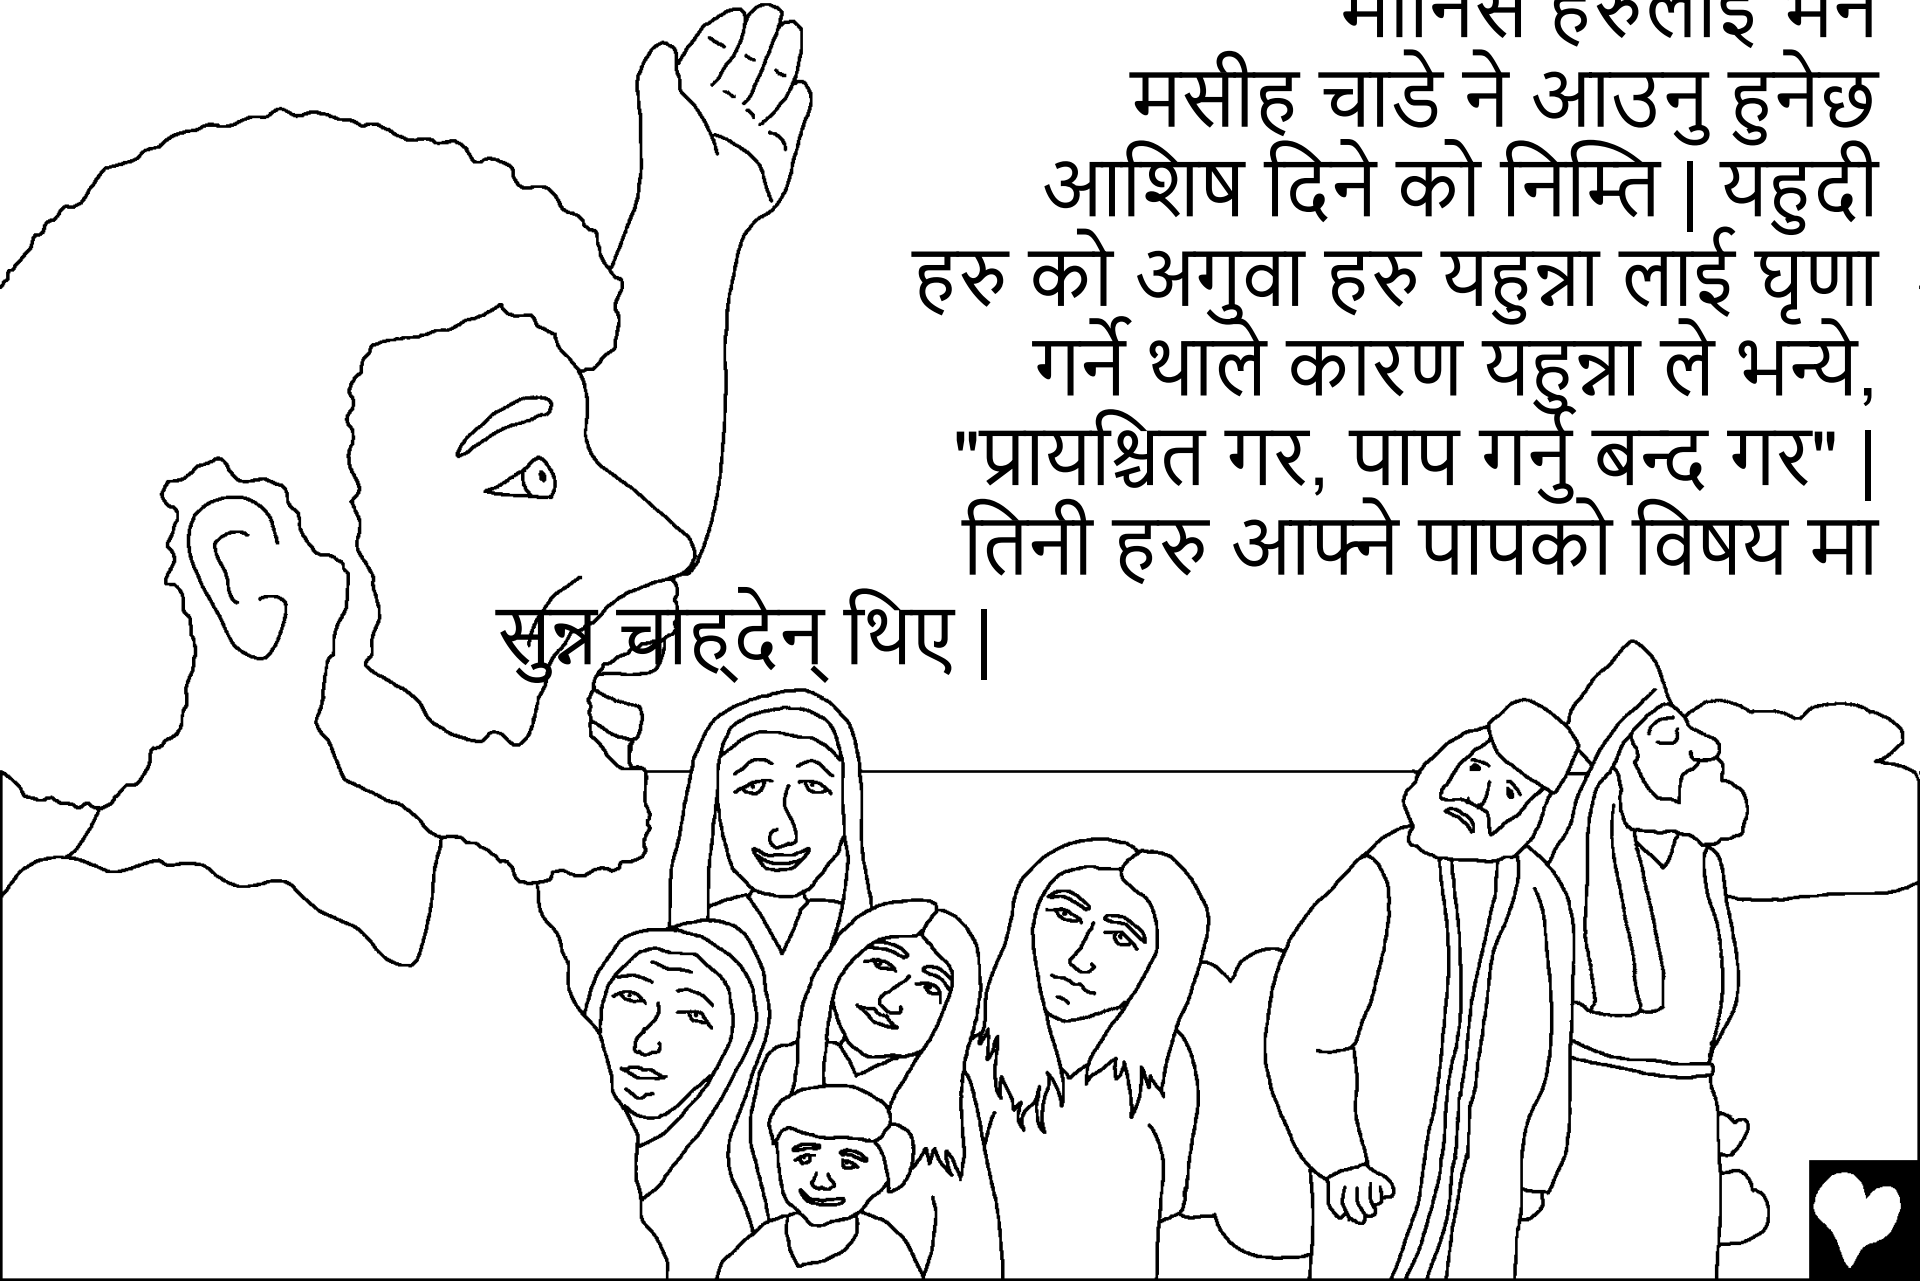 मानिस हरुलाई मन
मसीह चाडे ने आउनु हुनेछ
आशिष दिने को निम्ति | यहुदी
हरु को अगुवा हरु यहुन्ना लाई घृणा
गर्ने थाले कारण यहुन्ना ले भन्ये,
"प्रायश्चित गर, पाप गर्नु बन्द गर" |
तिनी हरु आफ्ने पापको विषय मा
सुन्न चाह्देन् थिए |